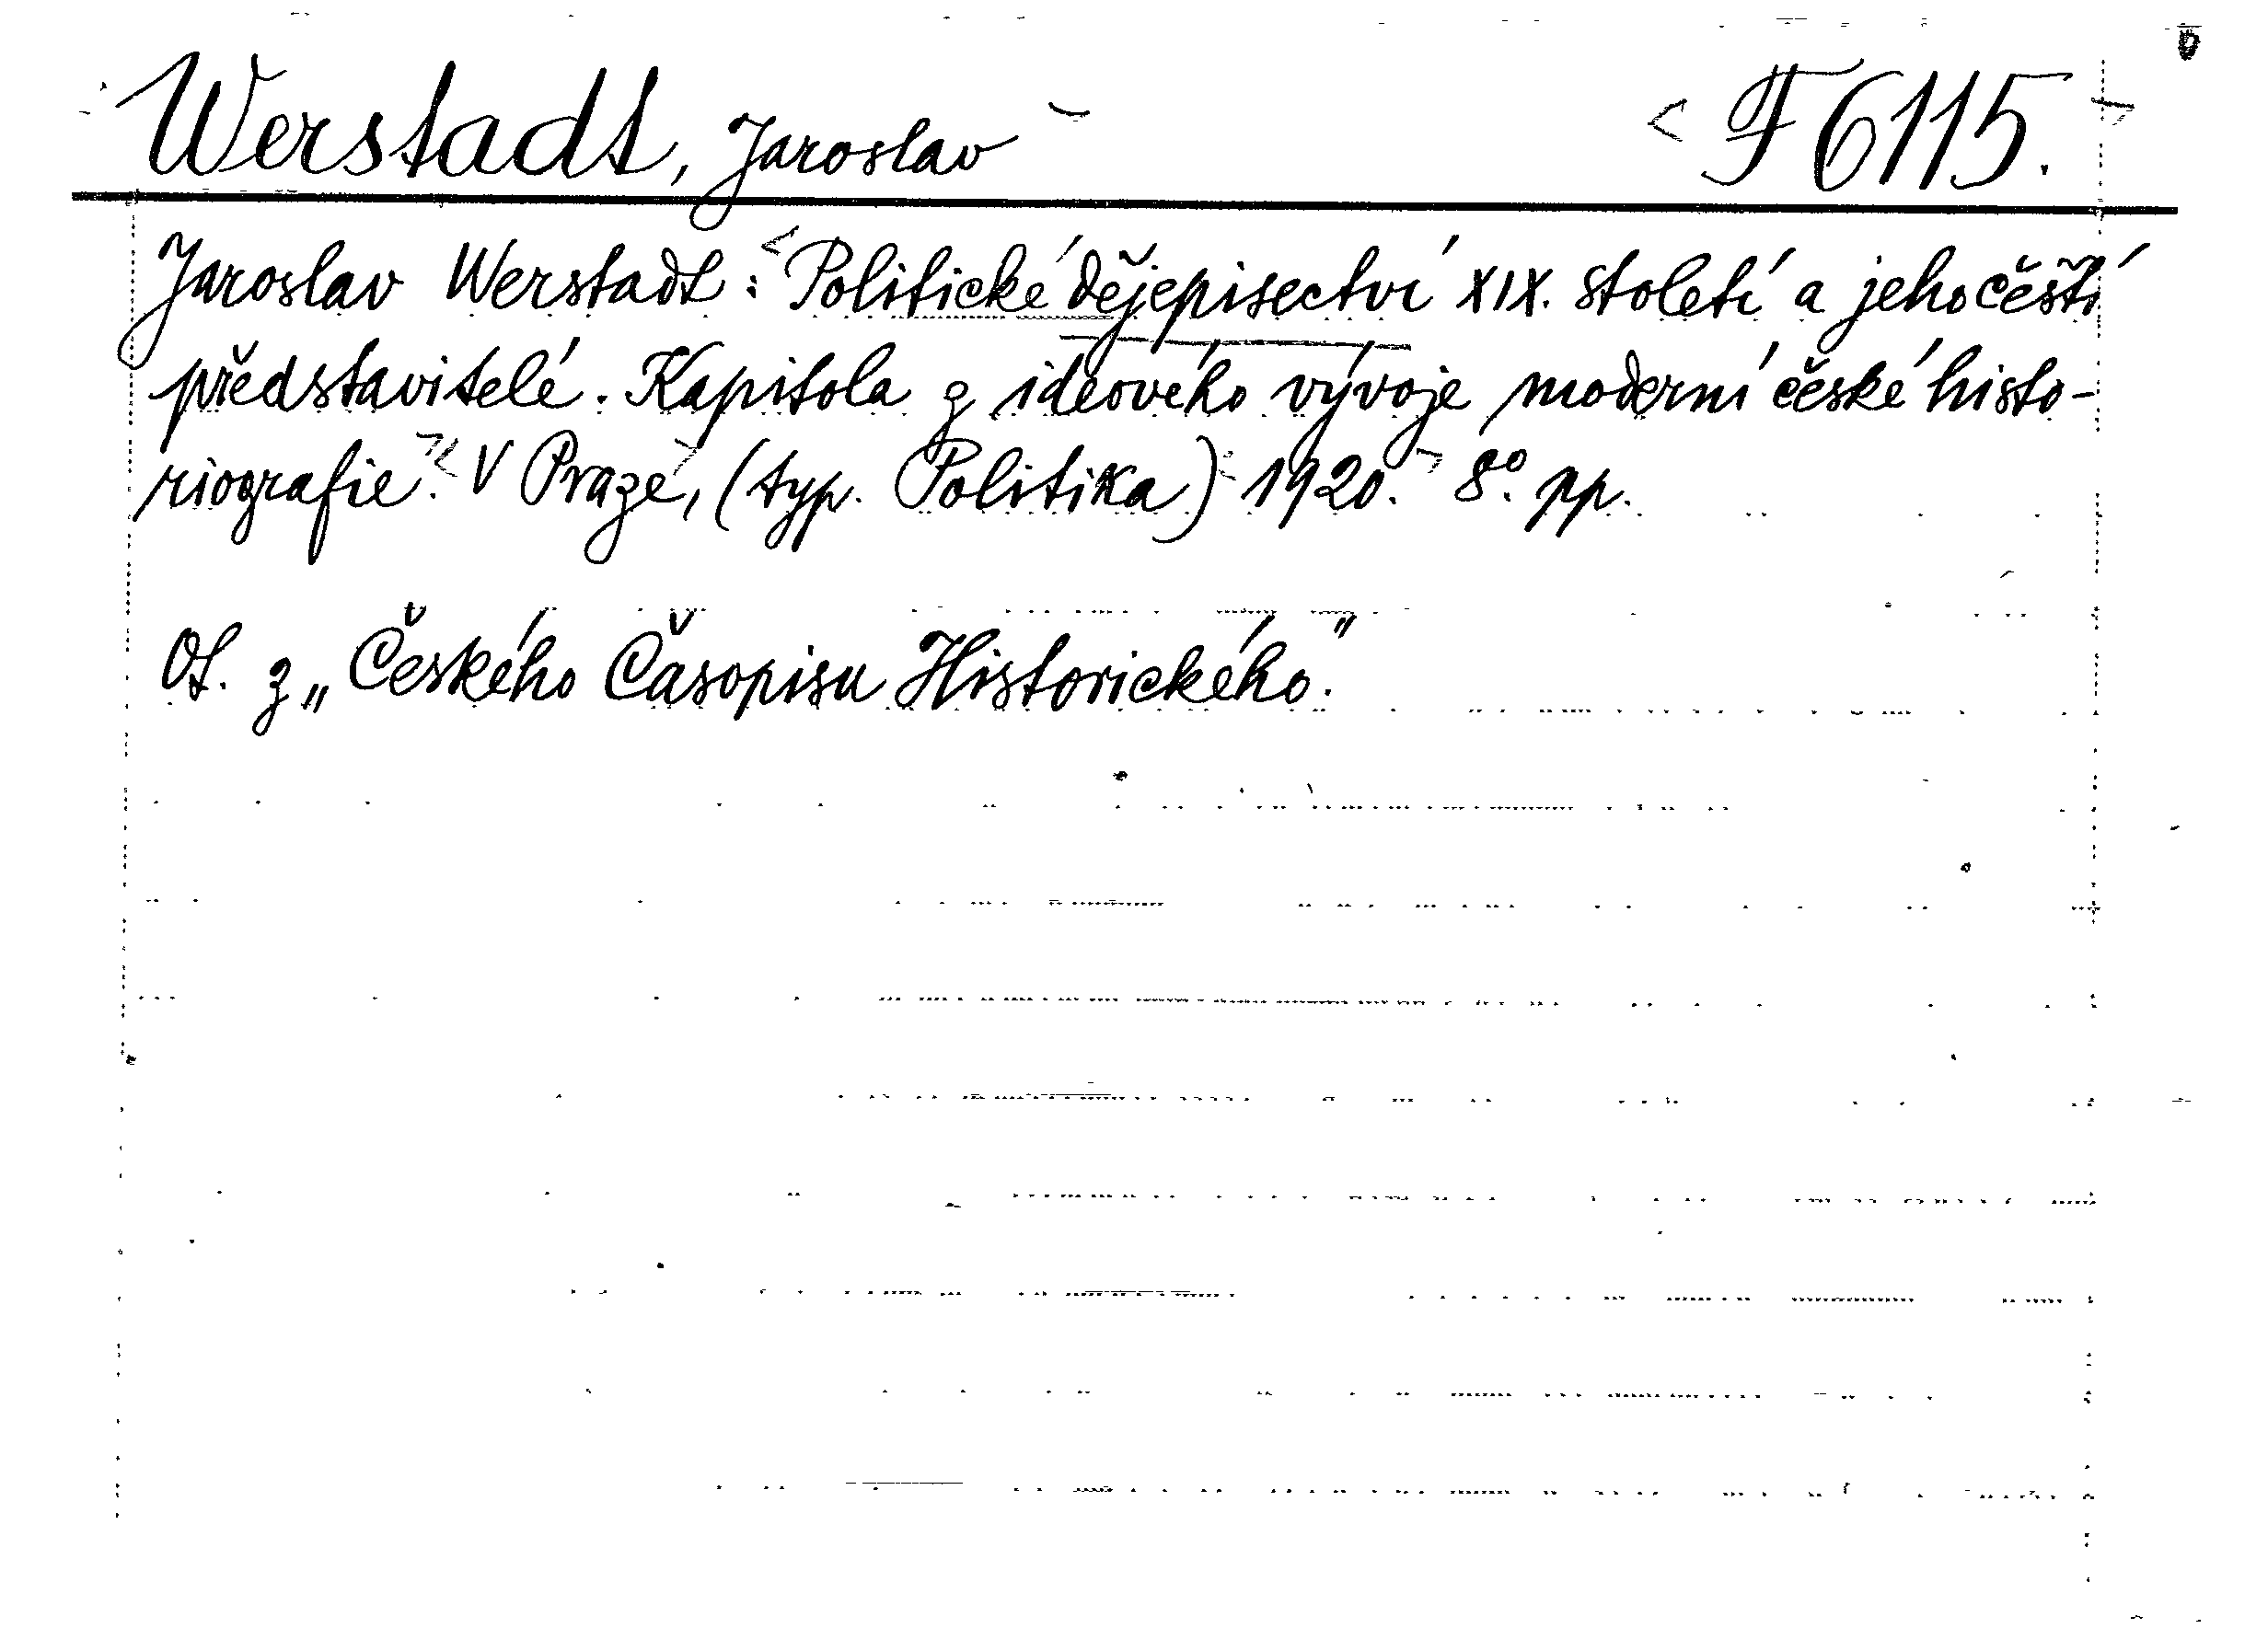 Werstadt, Jaroslav F 6115.
Jaroslav Werstadt: Politické dějepisectví XIX. století a jeho čeští
představitelé. Kapitola z ideového vývoje moderní české histo-
riografie. V Praze, (typ. Politika) 1920. 8°. pp.
Ot. z „Českého Časopisu Historického."